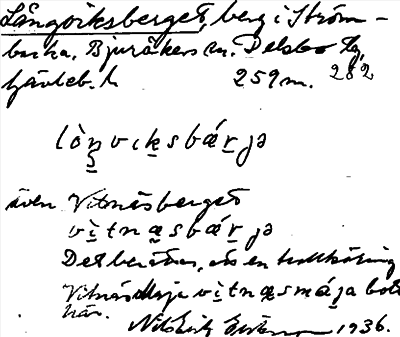 Långviksberget, berg i Ström-
backa, Bjuråkers sn. Delsbo tg,
Gävleb. l. 259 m. 282
lòn̠v ι k̠ s b ǽ r̠ j ə
även Vitnäsberget
v ì̠ t n æ̠ s b ǽ r̠ j ə
Det berättas, att en trollkäring
Vitnäsmaja v ì̠ t n æ̠ s m á j̠ a bott
här.
Nils 1936.